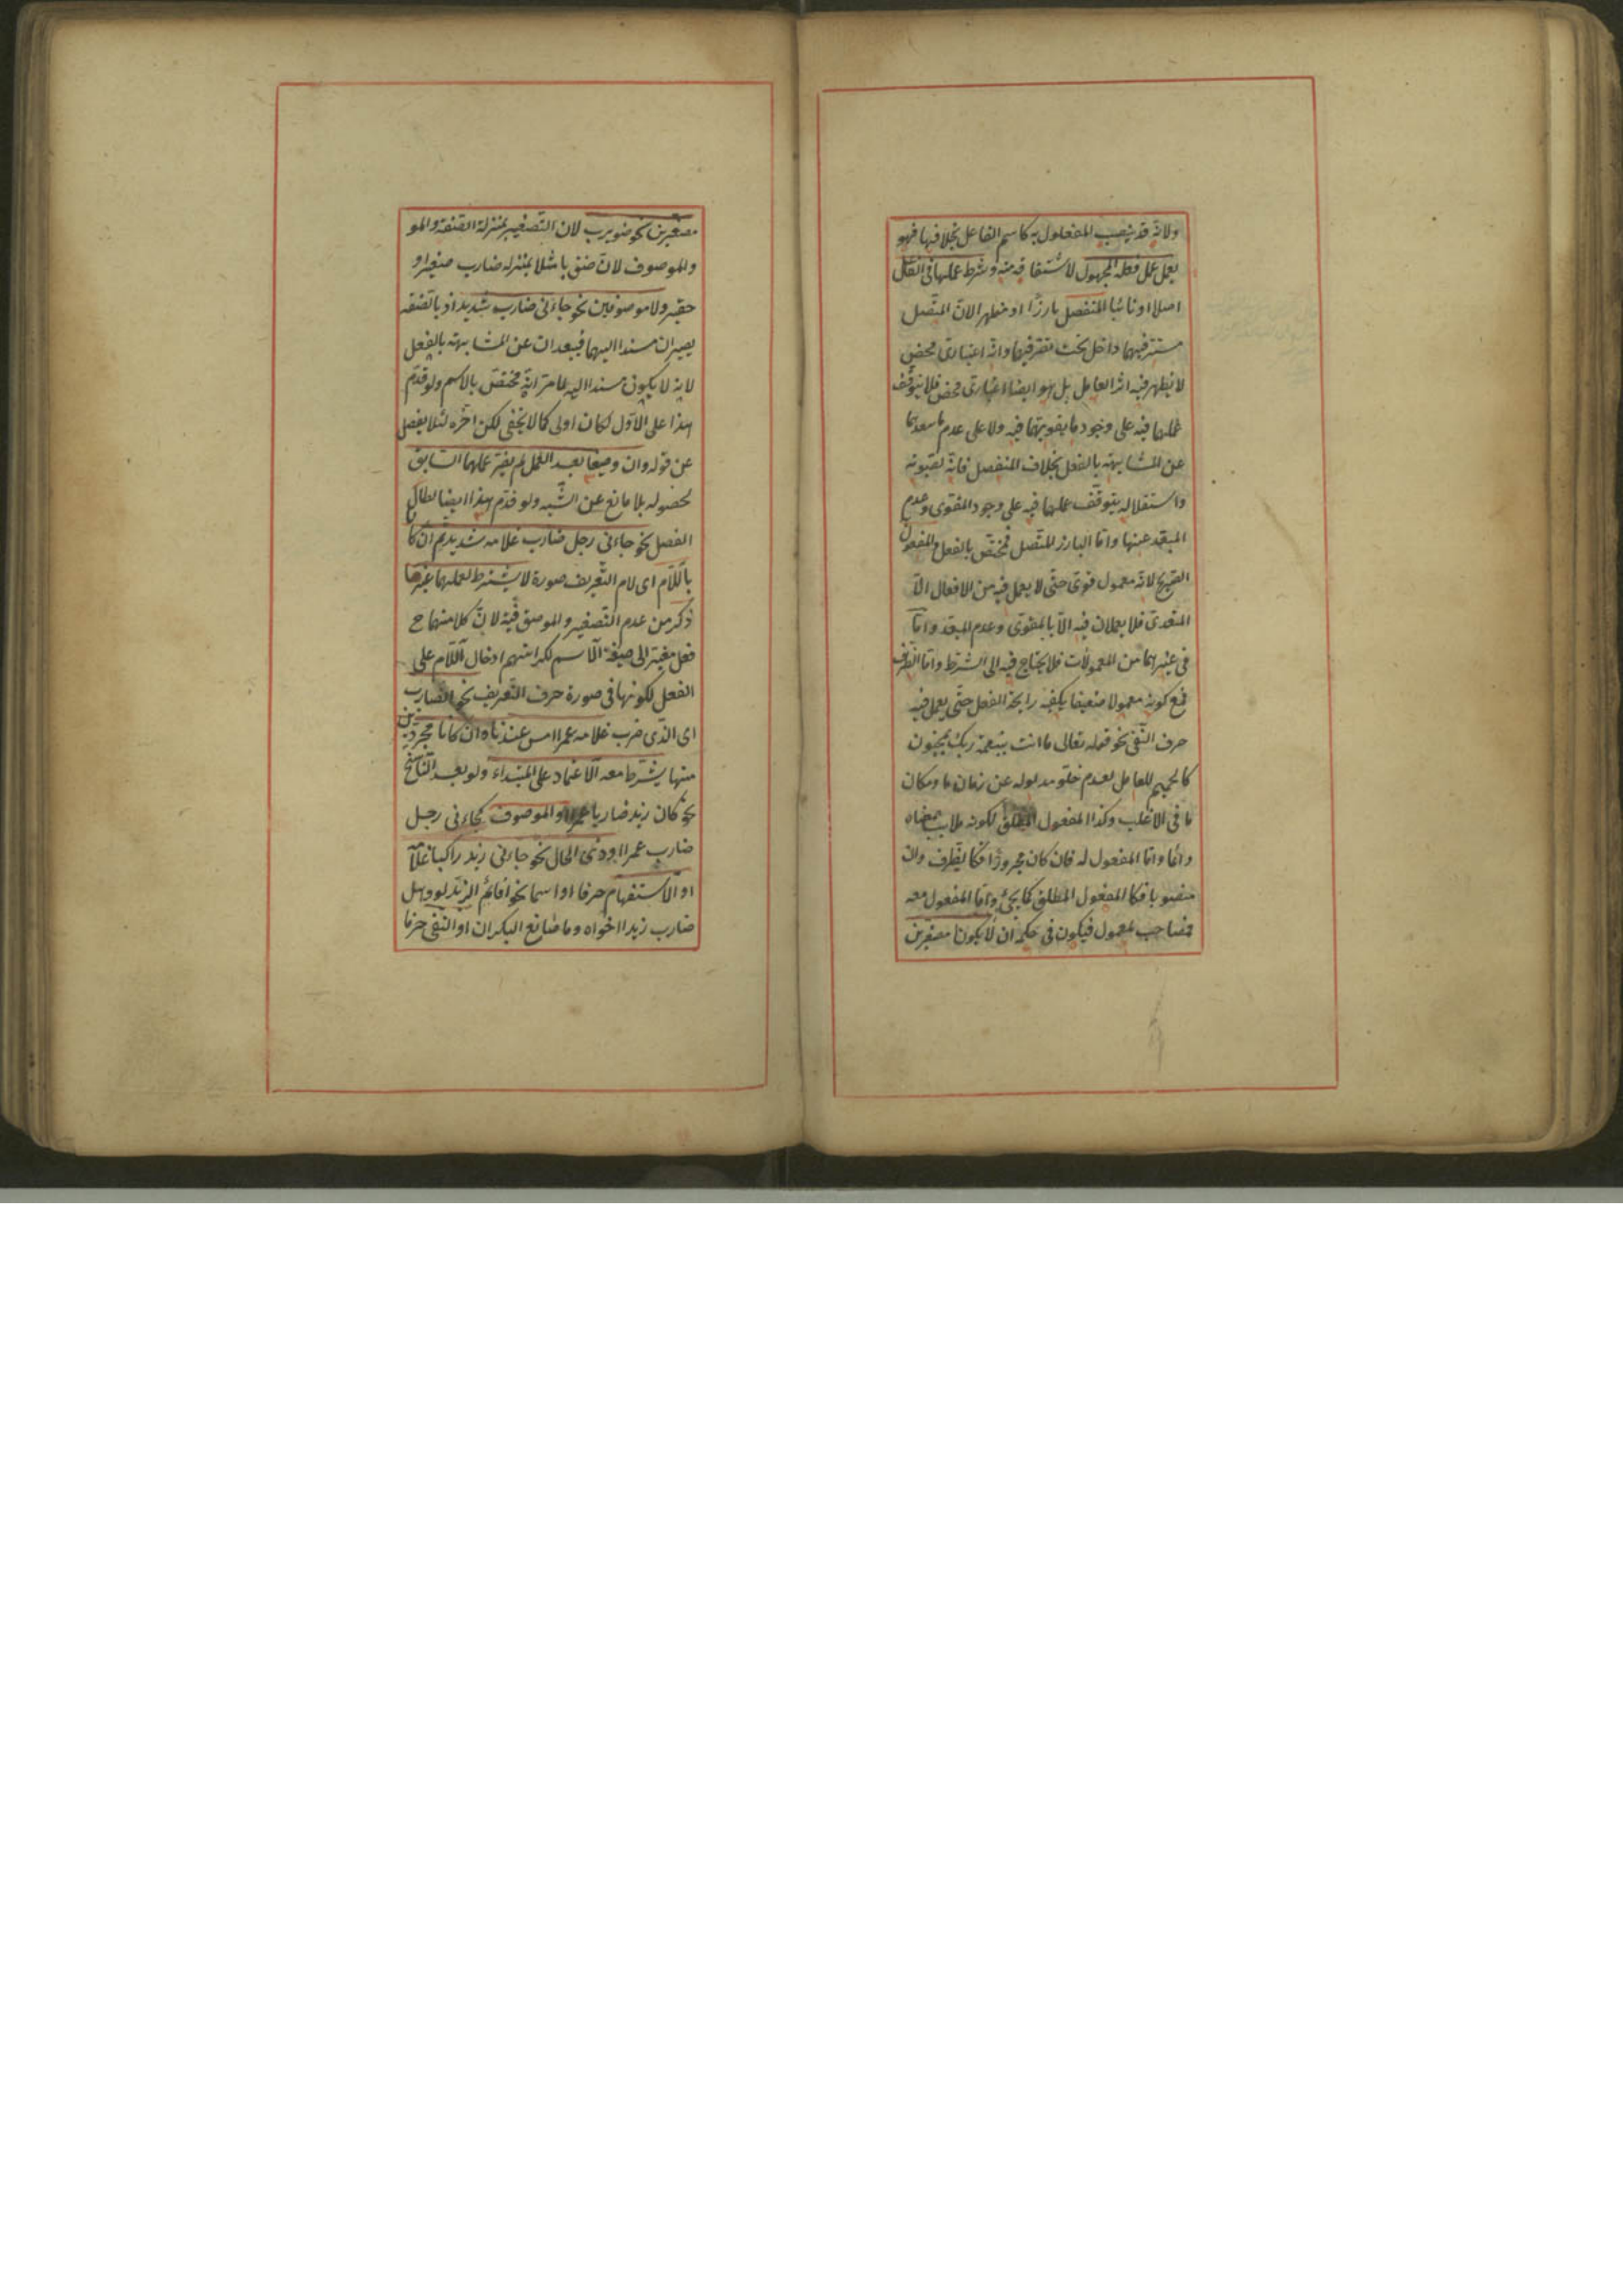 ولانه قد ينصب المفعول به كاسم الفاعل بخلافها فهو
يعمل عمل فعله المجهول لاشتقاقه منه وشرط عملها فى الفاعل
اصلا او نائبا المنفصل بارزا او مظهرا لان المتصل
مستتر فيهما داخل تحت وانه اعتبارى محض
لا يظهر فيه اثر العامل بل هو ايضا اعتبارى محض فلا يتوقف
عملها فيه على وجود ما يقويهما فيه ولا على عدم ما يبعدهما
عن المشابهة بالفعل بخلاف المنفصل فانه لقوته
واستقلاله يتوقف عملها فيه على وجود المقوى وعدم
المبعد عنها واما البارز المتصل فمختص بالفعل والمفعول
الصريح لانه معمول قوى حتى لا يعمل فيه من الافعال الا
المتعدى فلا يعملان فيه الا بالمقوى وعدم المبعد واما
فى غيرهما من المعمولات فلا يحتاج فيه الى الشرط واما الظرف
فمع كونه معمولا ضعيفا يكفيه رايحة الفعل حتى يعمل فيه
حرف النفى نحو قوله تعالى ما انت بنعمة ربك بمجنون
كالحميم للعامل لعدم خلو مدلوله عن زمان ما ومكان
ما فى الاغلب وكذا المفعول المطلق لكونه
واما المفعول له فان كان مجرورا فكالظرف وان
منصوبا فكالمفعول المطلق كما يجئ واما المفعول معه
فمصاحب لمعمول فيكون فى حكمه ان لا يكونا مصغرين
مصغرين نحو ضويرب لان التصغير بمنزلة الصفة والمو
والموصوف لان ضويربا مثلا بمنزلة ضارب صغير او
حقير ولا موصوفين نحو جاءنى ضارب شديد اذ بالصفة
يصيران مسندا اليهما فيبعدان عن المشابهة بالفعل
لانه لا يكون مسندا اليه لما مر انه مختص بالاسم ولو قدم
هذا على الاول لكان اولى كما لا يخفى لكن اخره لئلا يفصل
عن قوله وان وصفا بعد العمل لم يضر عملهما السابق
لحصوله بلا مانع عن الشبه ولو قدم هذا ايضا لطال
الفصل نحو جاءنى رجل ضارب غلامه شديد ثم ان كانا
باللام اى لام التعريف صورة لا يشترط لعملهما غير ما
ذكر من عدم التصغير والموصوفية لان كلا منهما ح
فعل مغير الى صيغة الاسم لكراهتهم ادخال اللام على
الفعل لكونها فى صورة حرف التعريف نحو الضارب
اى الذى ضرب غلامه عمرا امس عندنا وان كانا مجردين
منها يشترط معه الاعتماد على المبتداء ولو بعد الناسخ
نحو كان زيد ضاربا عمرا والموصوف كجاءنى رجل
ضارب عمرا او ذى الحال نحو جاءنى زيد راكبا غلامه
او الاستفهام حرفا او اسما نحو اقائم الزيد او وهل
ضارب زيدا اخواه وما صانع البكران او النفى حرفا